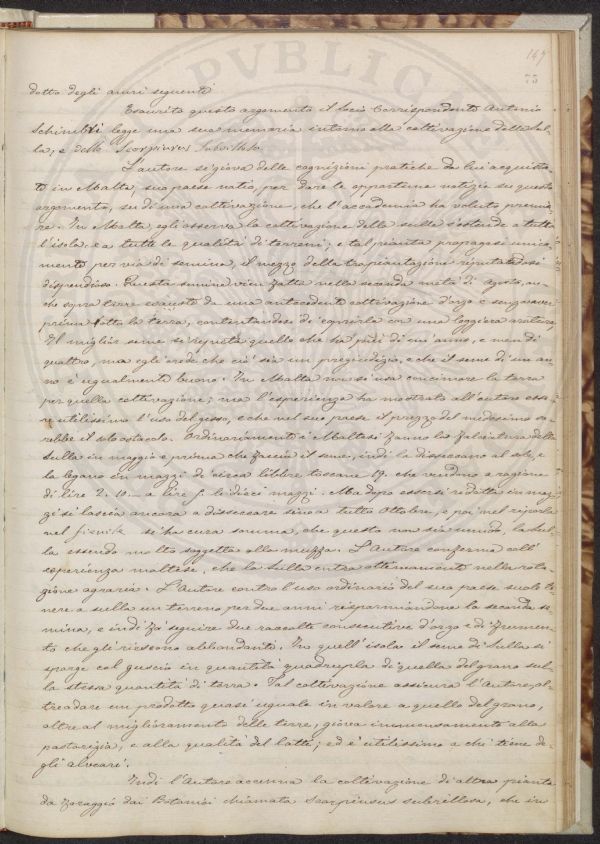 147
75
dotto degli anni seguenti
Esaurito questo argomento il Socio Corrispondente Antonio
Schembri legge una sua memoria intorno alla coltivazione della Sul-
la, e dello Scorpiurus Subvillosa.
L'autore si giova delle cognizioni pratiche da lui acquista-
te in Malta, suo paese natio, per dare le opportune notizie su questo
argomento, su di una coltivazione, che l'accademia ha voluto premia-
re. In Malta, egli osserva la coltivazione della sulla s'estende a tutta
l'isola e a tutte le qualità di terreni; e tal pianta propagasi unica-
mente per via di semine, il mezzo della trapiantazione riputandosi
dispendioso. Questa semina vien fatta nella seconda metà di Agosto, an-
che sopra terre esauste da una antecedente coltivazione d'orzo e senz'aver
prima rotta la terra, contentandosi di coprirla con una leggiera aratura.
Il miglior seme si reputa quello che ha più di un anno, e meno di
quattro, ma egli crede che ciò sia un pregiudizio, e che il seme di un an-
no è ugualmente buono. In Malta non si usa concimare la terra
per quella coltivazione; ma l'esperienza ha mostrato all'autore esse-
re utilissimo l'uso del gesso, e che nel suo paese il prezzo del medesimo sa-
rebbe il solo ostacolo. Ordinariamente i Maltesi fanno la falciatura della
Sulla in maggio e prima che faccia il seme, indi la disseccano al sole, e
la legano in mazzi di circa libbre toscane 19. che vendono a ragione
di lire 2. 10. a lire 5. le dieci mazzi. Ma dopo essersi ridotta in maz-
zi si lascia ancora a disseccare sino a tutto Ottobre, e poi nel riporla
nel fienile si ha cura somma, che questo non sia umido, la Sul-
la essendo molto soggetta alla muffa. L'Autore conferma coll'
esperienza maltese, che la Sulla entra ottimamente nella rota-
zione agraria. L'Autore contro l'uso ordinario del suo paese suole te-
nere a sulla un terreno per due anni risparmiandone la seconda se-
mina, e indi fa seguire due raccolte consecutive d'orzo e di frumen-
to che gli riescono abbondanti. In quell'isola il seme di Sulla si
sparge col guscio in quantità quadrupla di quella del grano sul-
la stessa quantità di terra. Tal coltivazione assicura l'Autore, ol-
tre a dare un prodotto quasi uguale in valore a quello del grano,
oltre al miglioramento delle terre, giova immensamente alla
pastorizia, e alla qualità del latte; ed è utilissimo a chi tiene de-
gli alveari.
Indi l'Autore accenna la coltivazione di altra pianta
da foraggio dai Botanici chiamata Scorpiurus subvillosa, che in